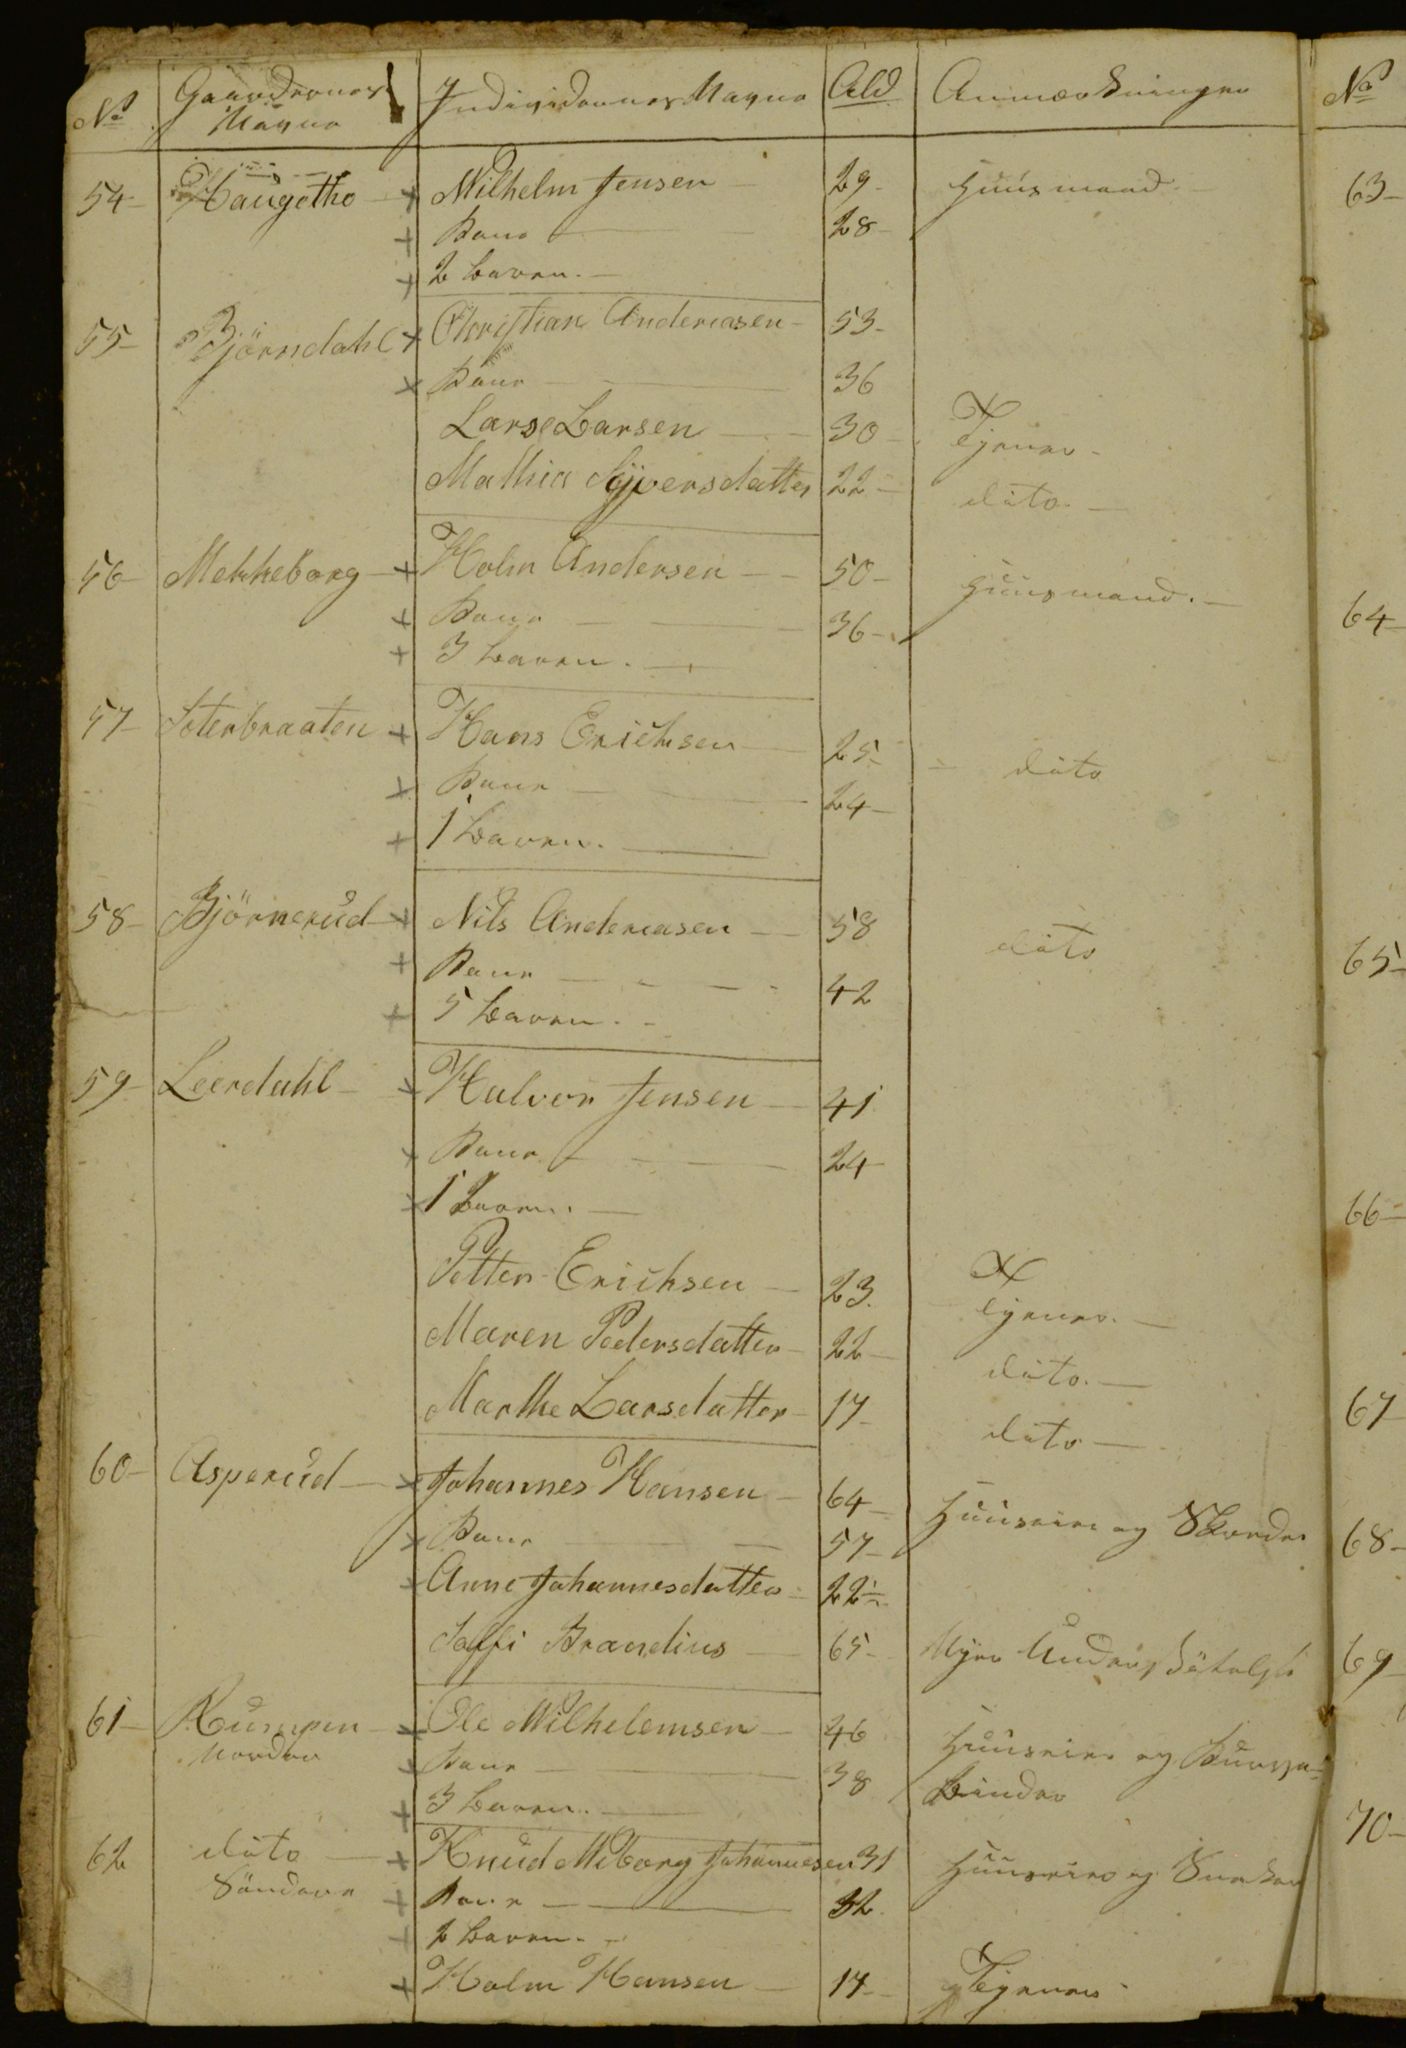 No Gaardernes Navne Individernes Navne Ald Anmærkninger No
54 Haugetho + Wilhelm Jensen 29 Huusmand 63
+ Kone 28
+ 2 Børn.
55 Bjørndahl + Christian Andreasen 53
+ Kone 36
Lars Larsen 30 Tjener
Mathia Syversdatter 22 dito
56 Mekkeborg + Holm Andersen 50 Huusmand.
+ Kone 36 64
+ 3 Børn.
57 Seterbraaten + Hans Erichsen 25 dito
+ Kone 24
+ 1 Børn.
58 Bjørnerud + Nils Andreasen 58 dito
+ Kone 42 65
+ 5 Børn.
59 Leerdahl + Halvor Jensen 41
+ Kone 24
+ 1 Børn. 66
Petter Erichsen 23. Tjener.
Maren Pedersdatter 22 dito.
Marthe Larsdatter 17 dito 67
60 Asperud + Johannes Hansen 64 Huuseier og
+ Kone 57 68
+ Anne Johannesdatter 22
Brandius 65 69
61 Rumpen + Ole Wilhelemsen 46 Huuseier og
Nordre + Kone 38 Binder
+ 3 Børn.
62 dito + Knud Meborg Johannesen 31 Huuseier og Snedker 70
Søndere + Kone 32
+ 2 Børn.
+ Holm Hansen 17 Tjener